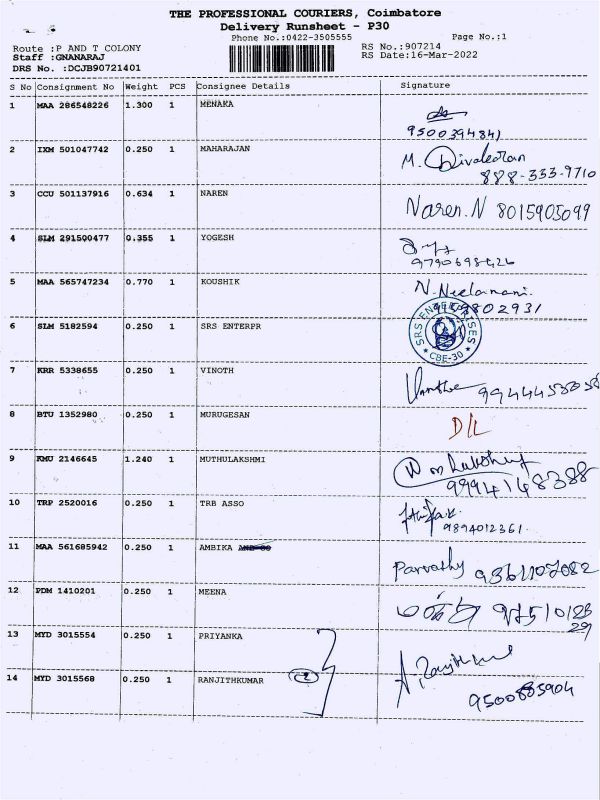 THE PROFESSIONAL COURIERS, Coimbatore
Delivery Runsheet - P30
Phone No.:0422-3505555
Page No.:1
Route :P AND T COLONY
RS No.:907214
Staff :GNANARAJ
RS Date:16-Mar-2022
DRS No. :DCJB90721401
S No Consignment No Weight PCS Consignee Details Signature
1 MAA 286548226 1.300 1 MENAKA
9500394841
2 IXM 501047742 0.250 1 MAHARAJAN M. Divakaran
888-333-9710
3 CCU 501137916 0.634 1 NAREN Naren.N 8015905099
4 SLM 291500477 0.355 1 YOGESH
5 MAA 565747234 0.770 1 KOUSHIK N. Neelamani.
6 SLM 5182594 0.250 1 SRS ENTERPR SRS ENTERPRISES
CBE-30
7 KRR 5338655 0.250 1 VINOTH
8 BTU 1352980 0.250 1 MURUGESAN D/L
9 KMU 2146645 1.240 1 MUTHULAKSHMI
9994148388
10 TRP 2520016 0.250 1 TRB ASSO
9894012361.
11 MAA 561685942 0.250 1 AMBIKA Parvathy
12 PDM 1410201 0.250 1 MEENA
13 MYD 3015554 0.250 1 PRIYANKA
14 MYD 3015568 0.250 1 RANJITHKUMAR 2 A. Ranjithkumar